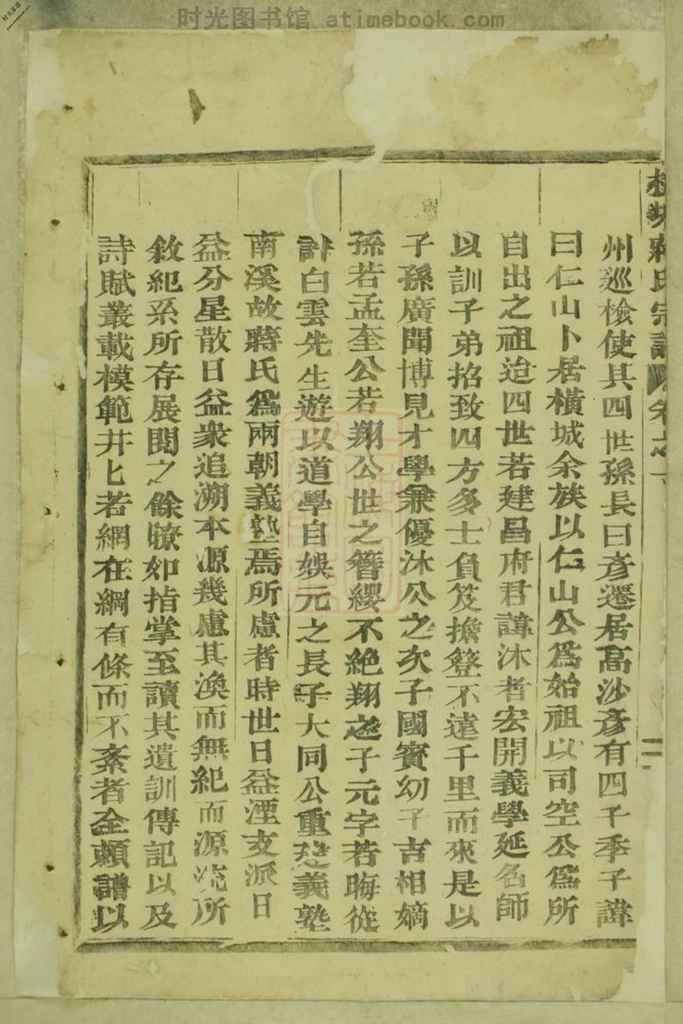 时光图书馆 atimebook.com
蔣氏宗譜 卷之一
州巡檢使其四世孫長曰彥遷居高沙彥有四子季子諱
曰仁山卜居橫城余族以仁山公爲始祖以司空公爲所
自出之祖迨四世若建昌府君諱沐者宏開義學延名師
以訓子弟招致四方多士負笈擔簦不遠千里而來是以
子孫廣聞博見才學兼優沐公之次子國賓幼子吉相嫡
孫若孟奎公若翔公世之簪纓不絕翔之子元字若晦從
許白雲先生遊以道學自娛元之長子大同公重建義塾
南溪故蔣氏爲兩朝義塾焉所慮者時世日益湮支派日
益分星散日益衆追溯本源幾慮其渙而無紀而源流所
敘紀系所存展閱之餘瞭如指掌至讀其遺訓傳記以及
詩賦叢載模範井匕若網在綱有條而不紊者全頼譜以
二